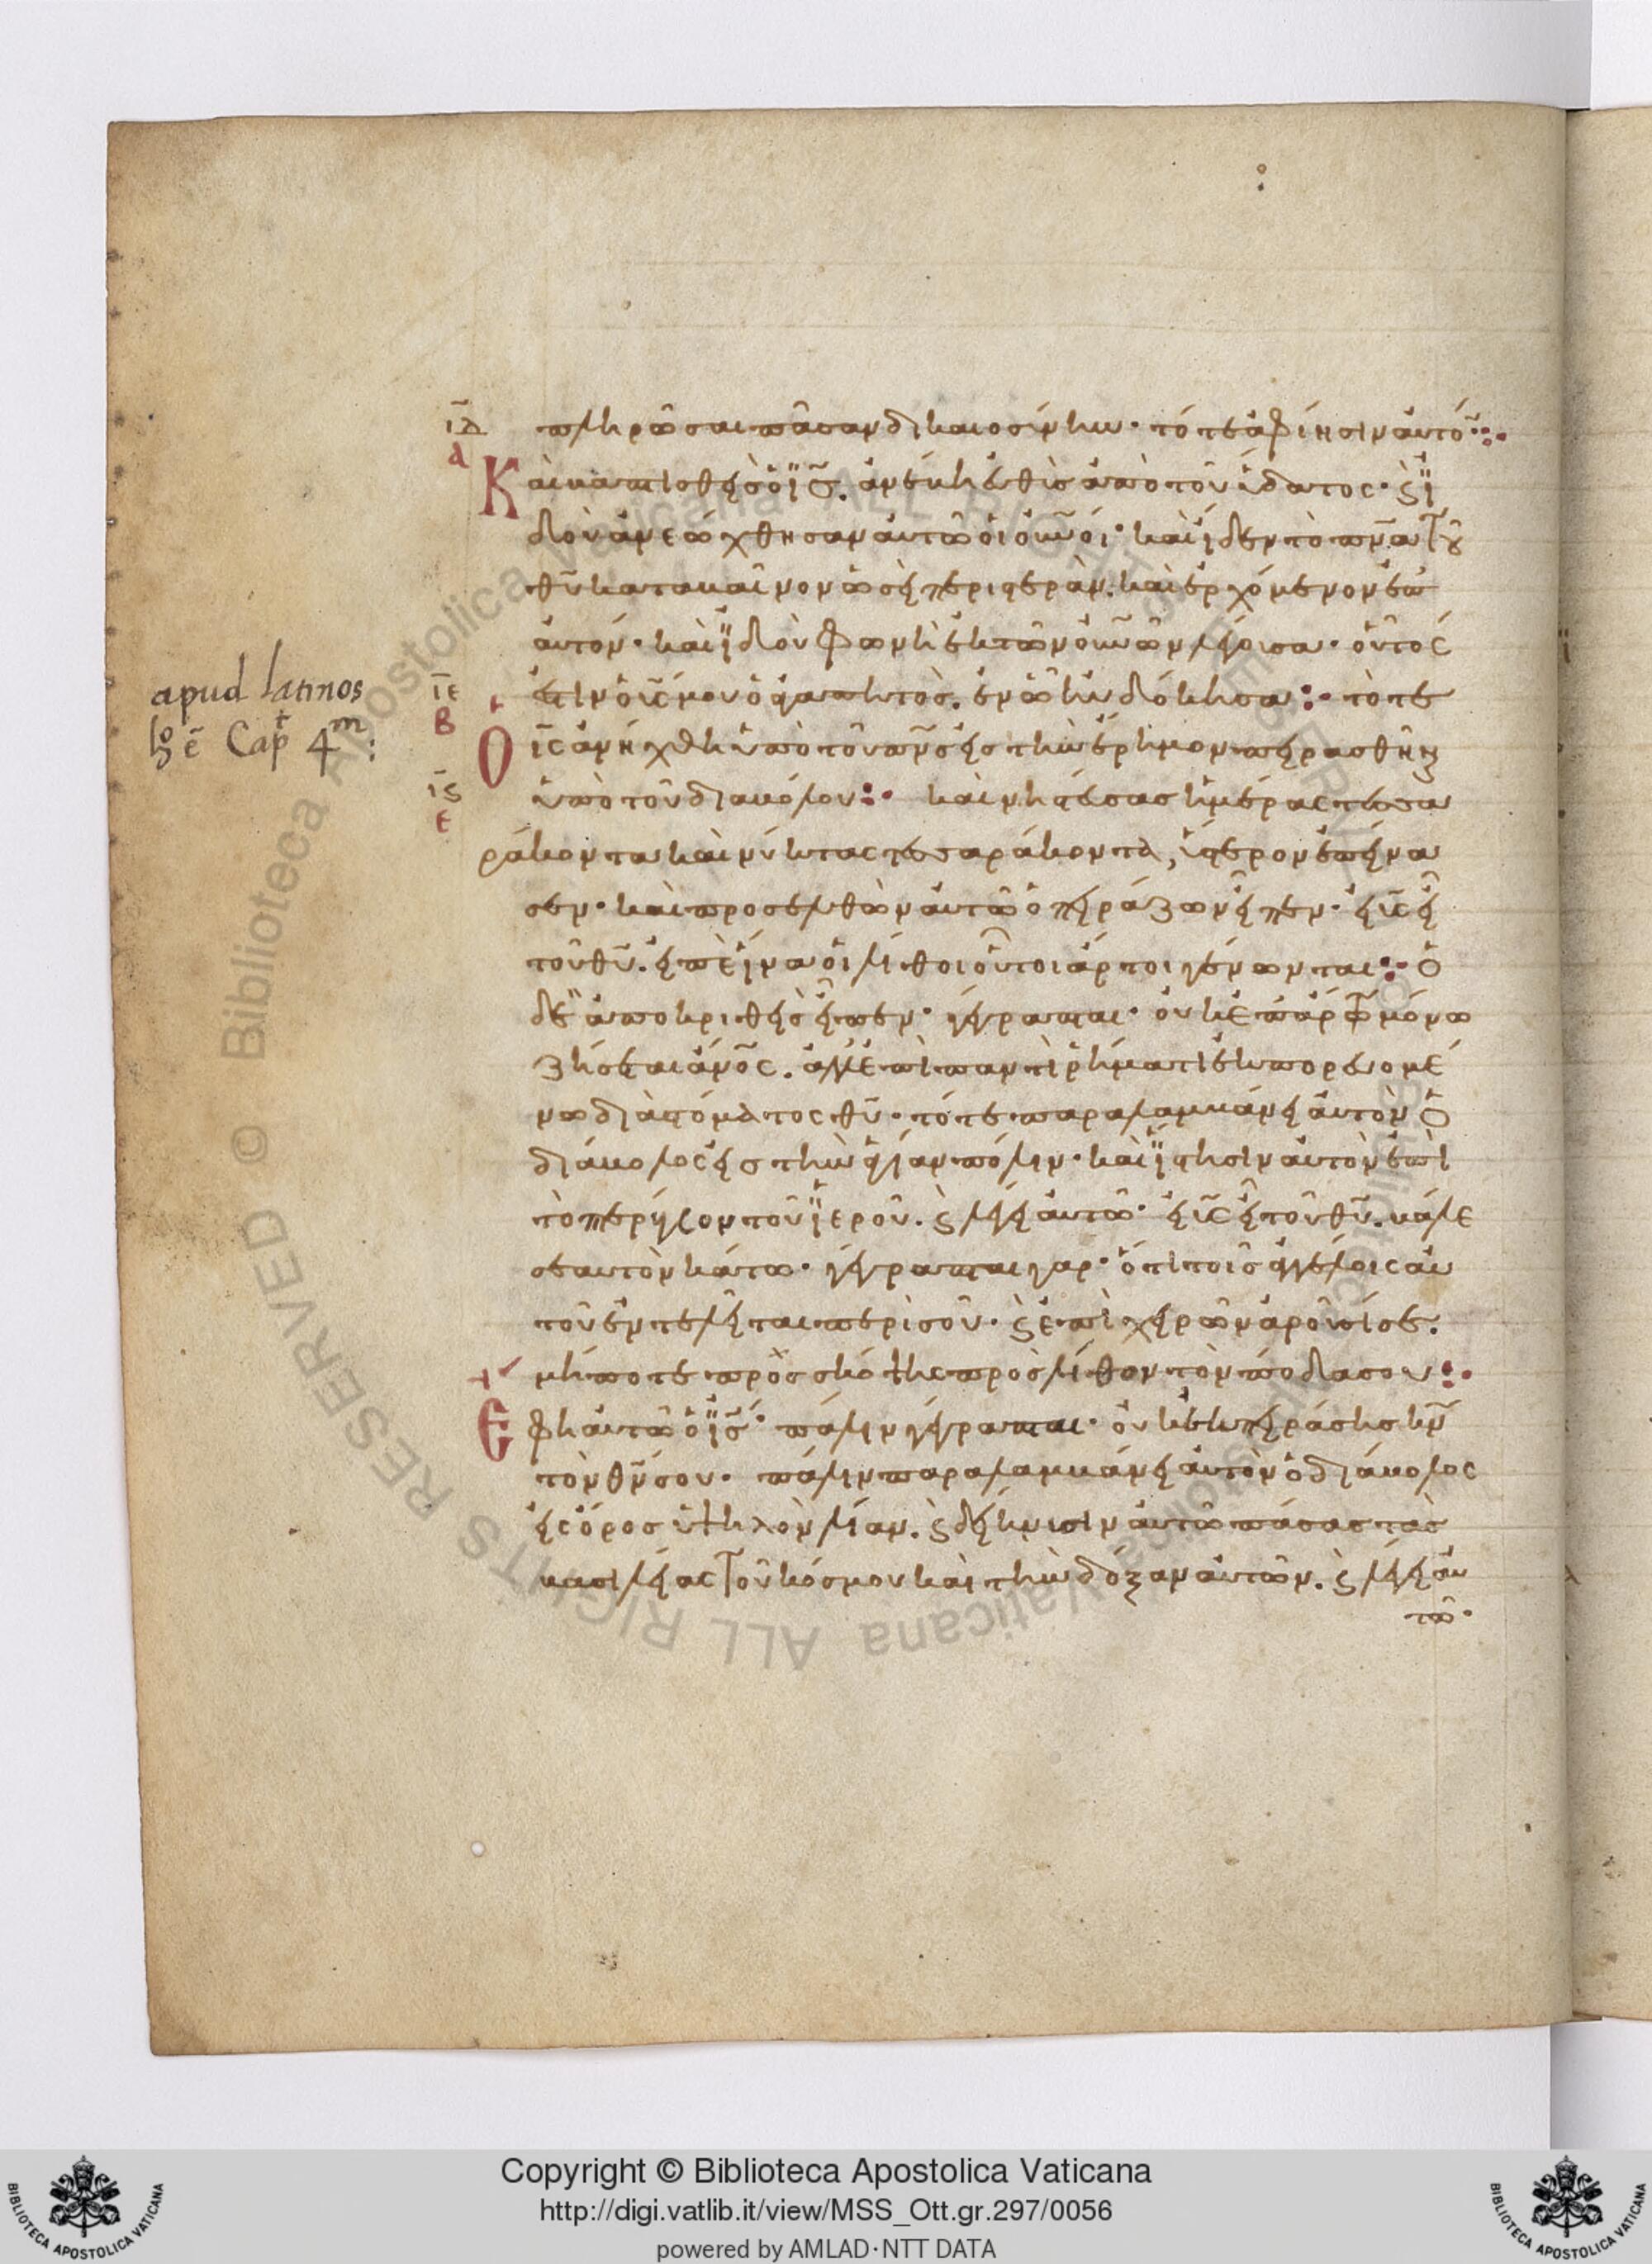 ιδ
α
πληρῶσαι πᾶσαν δικαιοσύνην· τότε ἀφίησιν αὐτό(ν)
Καὶ βαπτισθεὶς ὁ ις̅. ἀνέβη ἐυθὺς ἀπὸ τοῦ ὕδατος· ϛ ἰ
δοὺ ἀνεώχθησαν αὐτῶ οἱ οὐ̅νοί· καὶ ἴδεν τὸ πν̅α τοῦ
θυ̅ καταβαῖνον ὡσεὶ περιστερὰν. καὶ ἐρχόμενον ἐπ
αὐτόν· καὶ ἰδοὺ φωνὴ ἐκ τῶν οὐ̅νῶν λέγουσα· οὗτός
ἐστιν ὁ υι̅ς μου ὁ ἀγαπητὸς. ἐν ῶ ηὐδόκησα: τὸτε
ιε
β
Ο ις̅ ἀνήχθη ὑπὸ τοῦ πν̅ς εἰς τὴν ἔρημον πειρασθῆναι
ιϛ
ε
ὑπὸ τοῦ διαβόλου: καὶ νηστέυσας ἡμέρας τεσσα
ράκοντα καὶ νύκτας τεσσαράκοντα, ὕστερον ἐπείνα
σεν· καὶ προσελθὼν αὐτῶ ὁ πειράζων εἶπεν· εἰ υι̅ς εἶ
τοῦ θυ̅. εἰπὲ ἵνα οἱ λίθοι οὗτοι ἄρτοι γένωνται: ὁ
δὲ ἀποκριθεὶς εἶπεν· γέγραπται· οὐκ ἐπ ἄρτω μόνω
ζήσεται ἄνο̅ς. ἀλλ ἐπὶ παντὶ ῥήματι ἐκπορευομέ
νω διὰ στόματος θυ̅· τότε παραλαμβάνει αὐτὸν ὁ
διάβολος εἰς τὴν ἁγίαν πόλιν· καὶ ἵστησιν αὐτὸν ἐπὶ
τὸ πτερύγιον τοῦ ἱεροῦ. ϛ λέγει αὐτῶ· εἰ υι̅ς εἶ τοῦ θυ̅. βάλε
σεαυτὸν κάτω· γέγραπται γαρ· ὅτι τοῖς ἀγγέλοις αὐ
τοῦ ἐντελεῖται περὶ σοῦ· ϛ ἐπὶ χειρῶν ἀροῦσίσε.
μήποτε πρὸσκόψης πρὸς λίθον τὸν πόδα σου:
Εφη αὐτῶ ὁ ις̅· πάλιν γέγραπται· οὐκ ἐκπειράσης κν̅
τὸν θν̅ σου· πάλιν παραλαμβάνει αὐτὸν ὁ διάβολος
εἰς ὄρος ὑψηλὸν λίαν. ϛ δείκνυσιν αὐτῶ πάσας τὰς
βασιλείας τοῦ κόσμου καὶ τὴν δόξαν αὐτῶν. ϛ λέγει αὐ
τῶ·
apud latinos
hoc ē Capt 4m:
Copyright © Biblioteca Apostolica Vaticana
http://digi.vatlib.it/view/MSS_Ott.gr.297/0056
powered by AMLAD·NTT DATA
BIBLIOTECA APOSTOLICA VATICANA
BIBLIOTECA APOSTOLICA VATICANA
© Biblioteca Apostolica Vaticana ALL RIGHTS RESERVED